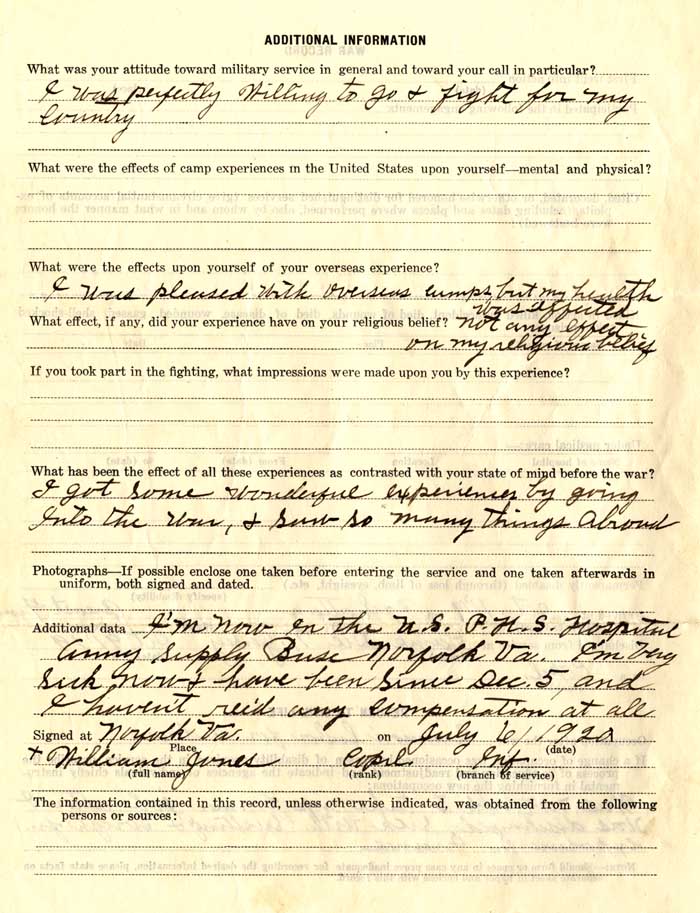 ADDITIONAL INFORMATION
What was your attitude toward military service in general and toward your call in particular?
I was perfectly willing to go & fight for my
Country
What were the effects of camp experiences in the United States upon yourself—mental and physical?
What were the effects upon yourself of your overseas experience?
I was pleased with overseas camps, but my health
was affected
What effect, if any, did your experience have on your religious belief? not any effect
on my religious belief
If you took part in the fighting, what impressions were made upon you by this experience?
What has been the effect of all these experiences as contrasted with your state of mind before the war?
I got some wonderful experiences by going
into the war, & saw so many things abroad
Photographs—If possible enclose one taken before entering the service and one taken afterwards in
uniform, both signed and dated.
Additional data I'm now in the U.S. P.H.S. Hospital
Army Supply Base Norfolk Va. I'm very
sick now & have been since Dec. 5, and
I havent reid any compensation at all
Signed at Norfolk Va. on July 6/1920
Place (date)
+ William Jones Copl. Inf.
(full name) (rank) (branch of service)
The information contained in this record, unless otherwise indicated, was obtained from the following
persons or sources: